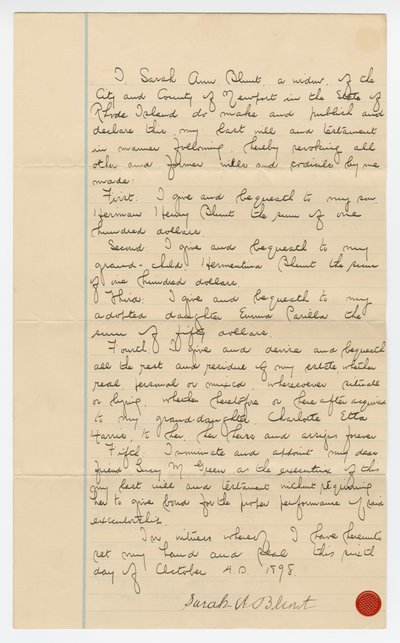 I Sarah Ann Blunt, a widow, of the
City and County of Newport in the State of
Rhode Island do make and publish and
declare this my last will and testament
in manner following, hereby revoking all
other and former wills and codicils by me
made:
First. I give and bequeath to my son,
Herman Henry Blunt the sum of one
hundred dollars.
Second. I give and bequeath to my
grand-child, Hermentina Blunt the sum
of one hundred dollars.
Third. I give and bequeath to my
adopted daughter Emma Parilla the
sum of fifty dollars.
Fourth. I give and devise and bequeath
all the rest and residue of my estate, whether
real, personal or mixed wheresoever situate
or lying, whether heretofore or hereafter acquired
to my granddaughter Charlotte Etta
Harris, to her, her heirs and assigns forever
Fifth. I nominate and appoint my dear
friend Lucy M Green as the executrix of this
my last will and testament without requiring
her to give bond for the proper performance of said
executorship
In witness whereof I have hereunto
set my hand and seal this sixth
day of October A.D. 1898.
Sarah A Blunt